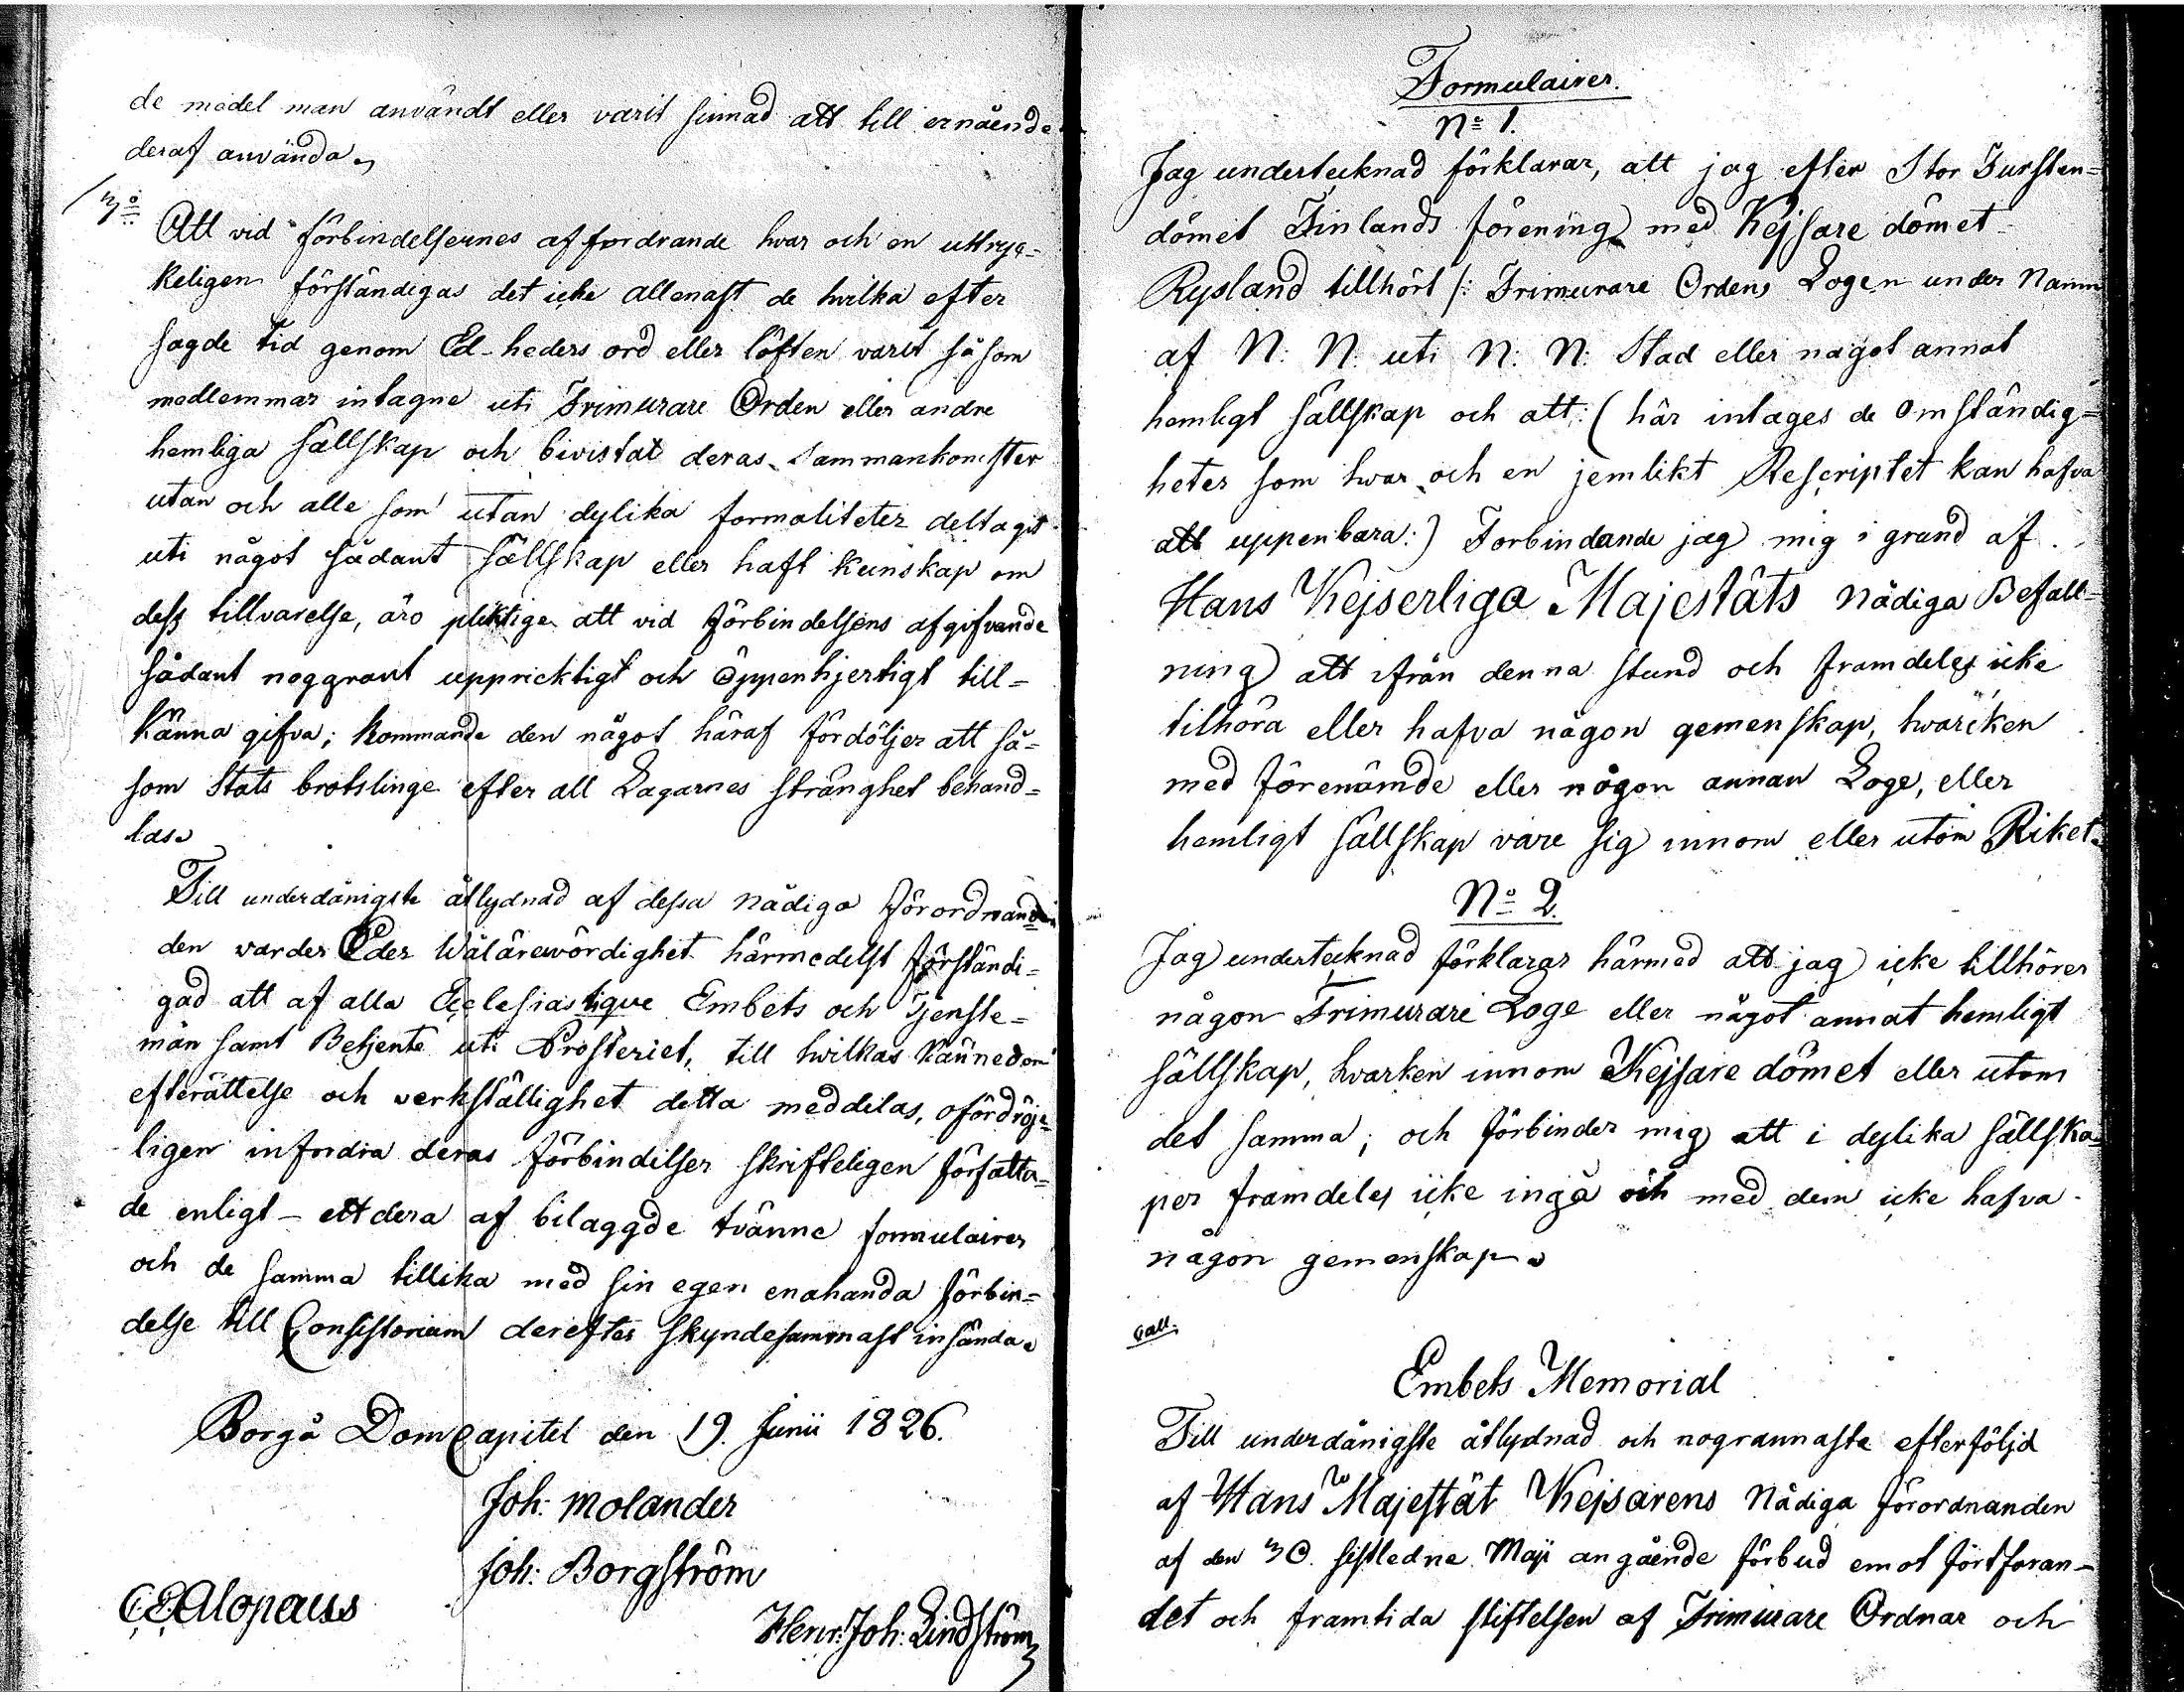 de medel man användt eller varit sinnad att till ernående
deraf använda.
3:o Att vid förbindelsernes affordrande hwar och en uttryc-
keligen förständigas det icke allenast de hwilka efter
sagde tid genom Ed-heders ord eller löften varit såsom
medlemmar intagne uti Frimurare Orden eller andre
hemliga sällskap och bivistat deras Sammankomster
utan och alle som utan dylika formaliteter deltagit
uti något sådant sällskap eller haft kunskap om
dess tillvarelse, äro pliktige att vid förbindelsens afgifvande
sådant noggrant uppricktigt och Öppenhjertigt till-
känna gifva; kommande den något häraf fördöljer att så-
som Stats brotslinge efter all Lagarnes stränghet behand-
las.
Till underdånigste åtlydnad af dessa nådiga förordnan
den warder Eder Wälärewördighet härmedelst förständi-
gad att af alla Ecclesiastique Embets och Tjenste-
män samt Betjente uti Prosteriet, till hwilkas kännedom
efterättelse och verkställighet detta meddelas, ofördröje-
ligen infordra deras förbindelser skrifteligen författa-
de enligt - ettdera af bilaggde tvänne formulairer
och de samma tillika med sin egen enahanda förbin-
delse till Consistorium derefter skyndesammast insända.
Borgå Domcapitel den 19. Junii 1826.
Joh: Molander
Joh: Borgström
C. E. Alopæus
Henr: Joh: Lindström
Formulairer.
No 1.
Jag undertecknad förklarar, att jag efter Stor Fursten-
dömet Finlands förening med Kejsare dömet
Rysland tillhört /: Frimurare Ordens Logen under Namn
af N. N. uti N: N: Stad eller något annat
hemligt sällskap och att: ( här intages de Omständig-
heter som hwar och en jemlikt Rescriptet kan hafva
att uppenbara:) Forbindande jag mig i grund af
Hans Kejserliga Majestäts nådiga Befall-
ning att ifrån denna stund och framdeles icke
tilhöra eller hafva någon gemenskap, hwarcken
med förenämde eller någon annan Loge, eller
hemligt sällskap vare sig innom eller utom Riket.
No 2.
Jag undertecknad förklarar härmed att jag icke tillhörer
någon Frimurare Loge eller något annat hemligt
sällskap, hvarken innom Kejsare dömet eller utom
det samma; och förbinder mig att i dylika sällska-
per framdeles icke ingå och med dem icke hafva
någon gemenskap.
Embets Memorial
Till underdånigste åtlydnad och nogrannaste efterföljd
af Hans Majestät Kejsarens Nådiga förordnanden
af den 30. sistledne Maji angående förbud emot fortfaran-
det och framtida stiftelsen af Frimurare Ordnar och